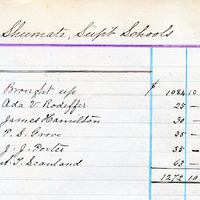 Shumate, Supt Schools
Brought up $ 1084 10
Ada V. Rodeffer 25 —
James Hamilton 30 —
P. S. Grove 35 —
J. J. Porter 35 —
A. T. Scanland 63 —
1272 10